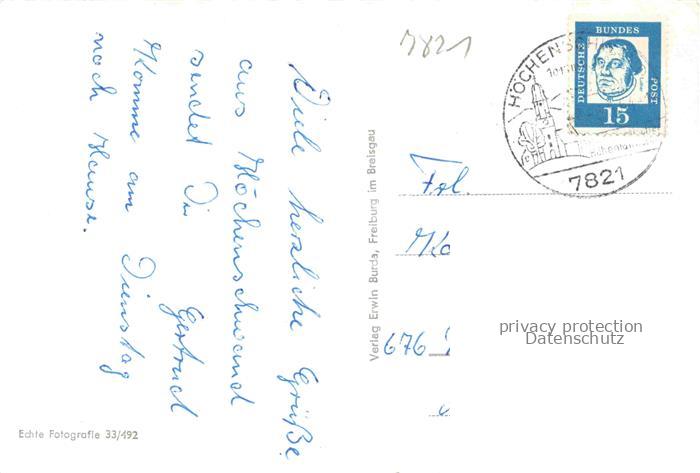 Viele herzliche Grüße
aus Höchenschwand
sendet Dir
Gertrud
Komme am Dienstag
nach Hause.
Echte Fotografie 33/492
Verlag Erwin Burda, Freiburg im Breisgau
7821
HÖCHENSCH
7821
DEUTSCHE BUNDES POST
15
Frl.
676
privacy protection
Datenschutz